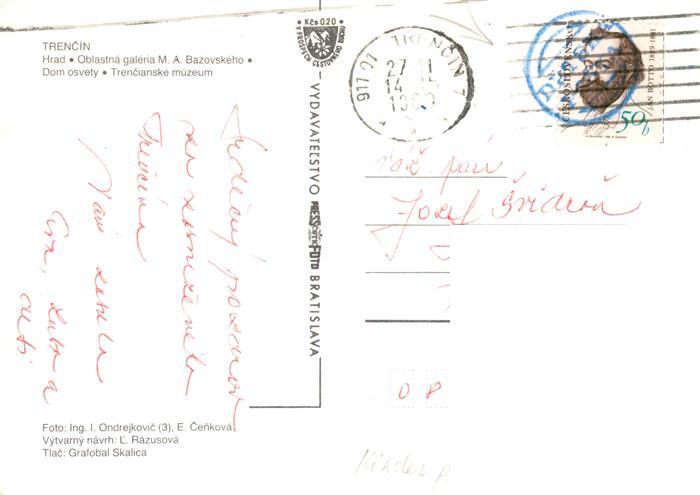 TRENČÍN
Hrad • Oblastná galéria M. A. Bazovského •
Dom osvety • Trenčianske múzeum
Kčs 0.20
V PROSPECH CESTOVNÉHO RUCHU
VYDAVATEĽSTVO PRESSFOTO BRATISLAVA
917 01 TRENČÍN 1
27 11
14
ČESKOSLOVENSKO
JÁN BOTTO 1829-1881
50h
Srdečný pozdrav
zo zasneženého
Trenčína
Vám
Eva, Ľubo a
deti
Váž. pán
Jozef
0 8
Foto: Ing. I. Ondrejkovič (3), E. Čeňková
Výtvarný návrh: Ľ. Rázusová
Tlač: Grafobal Skalica
Kinder